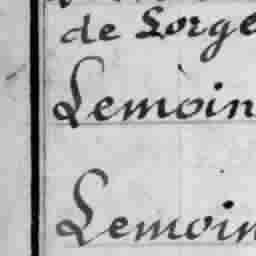 de Sorge
Lemoin
Lemoin